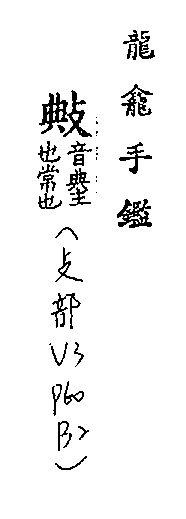 龍龕手鑑
敟音典主
也常也
(攴部
V3
P60
B2)